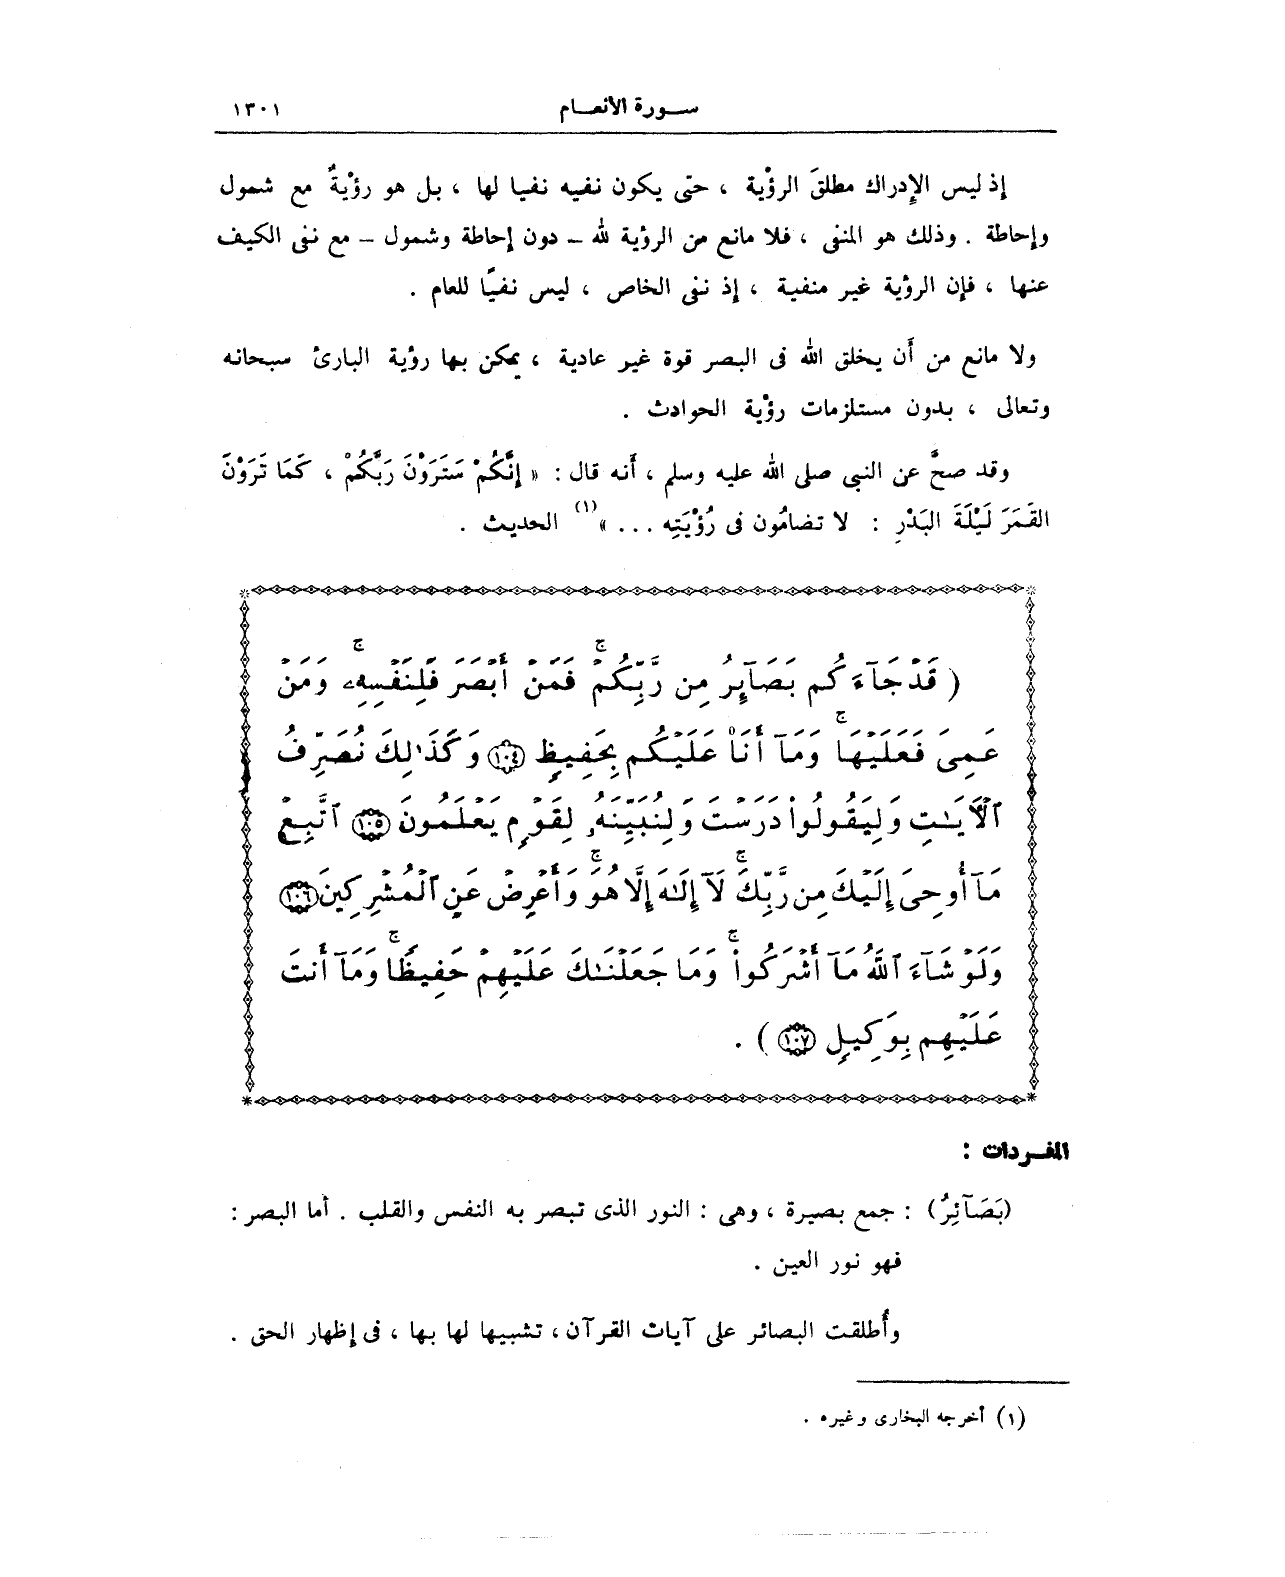 سورة الأنعام ١٣٠١
إذ ليس الإدراك مطلقَ الرؤْية ، حتى يكون نفيه نفيا لها ، بل هو رؤْيةٌ مع شمول
وإحاطة . وذلك هو المنفى ، فلا مانع من الرؤية لله – دون إحاطة وشمول – مع نفى الكيف
عنها ، فإن الرؤية غير منفية ، إذ نفى الخاص ، ليس نفيًا للعام .
ولا مانع من أَن يخلق الله فى البصر قوة غير عادية ، يمكن بها رؤية البارئ سبحانه
وتعالى ، بدون مستلزمات رؤْية الحوادث .
وقد صحَّ عن النبى صلى الله عليه وسلم ، أنه قال : « إِنَّكُمْ سَتَرَوْنَ رَبَّكُمْ ، كَمَا تَرَوْنَ
القَمَرَ لَيْلَةَ البَدْرِ : لا تضامُون فى رُؤْيَتِه ... »(١) الحديث .
( قَدْ جَآءَكُم بَصَآئِرُ مِن رَّبِّكُمْ ۖ فَمَنْ أَبْصَرَ فَلِنَفْسِهِۦ ۖ وَمَنْ
عَمِىَ فَعَلَيْهَا ۚ وَمَآ أَنَا۠ عَلَيْكُم بِحَفِيظٍ ﴿١٠٤﴾ وَكَذَٰلِكَ نُصَرِّفُ
ٱلْـَٔايَـٰتِ وَلِيَقُولُوا۟ دَرَسْتَ وَلِنُبَيِّنَهُۥ لِقَوْمٍ يَعْلَمُونَ ﴿١٠٥﴾ ٱتَّبِعْ
مَآ أُوحِىَ إِلَيْكَ مِن رَّبِّكَ ۚ لَآ إِلَـٰهَ إِلَّا هُوَ ۚ وَأَعْرِضْ عَنِ ٱلْمُشْرِكِينَ ﴿١٠٦﴾
وَلَوْ شَآءَ ٱللَّهُ مَآ أَشْرَكُوا۟ ۚ وَمَا جَعَلْنَـٰكَ عَلَيْهِمْ حَفِيظًا ۚ وَمَآ أَنتَ
عَلَيْهِم بِوَكِيلٍ ﴿١٠٧﴾ ) .
المفردات :
(بَصَآئِرُ) : جمع بصيرة ، وهى : النور الذى تبصر به النفس والقلب . أما البصر :
فهو نور العين .
وأُطلقت البصائر على آيات القرآن ، تشبيها لها بها ، فى إظهار الحق .
(١) أخرجه البخارى وغيره .